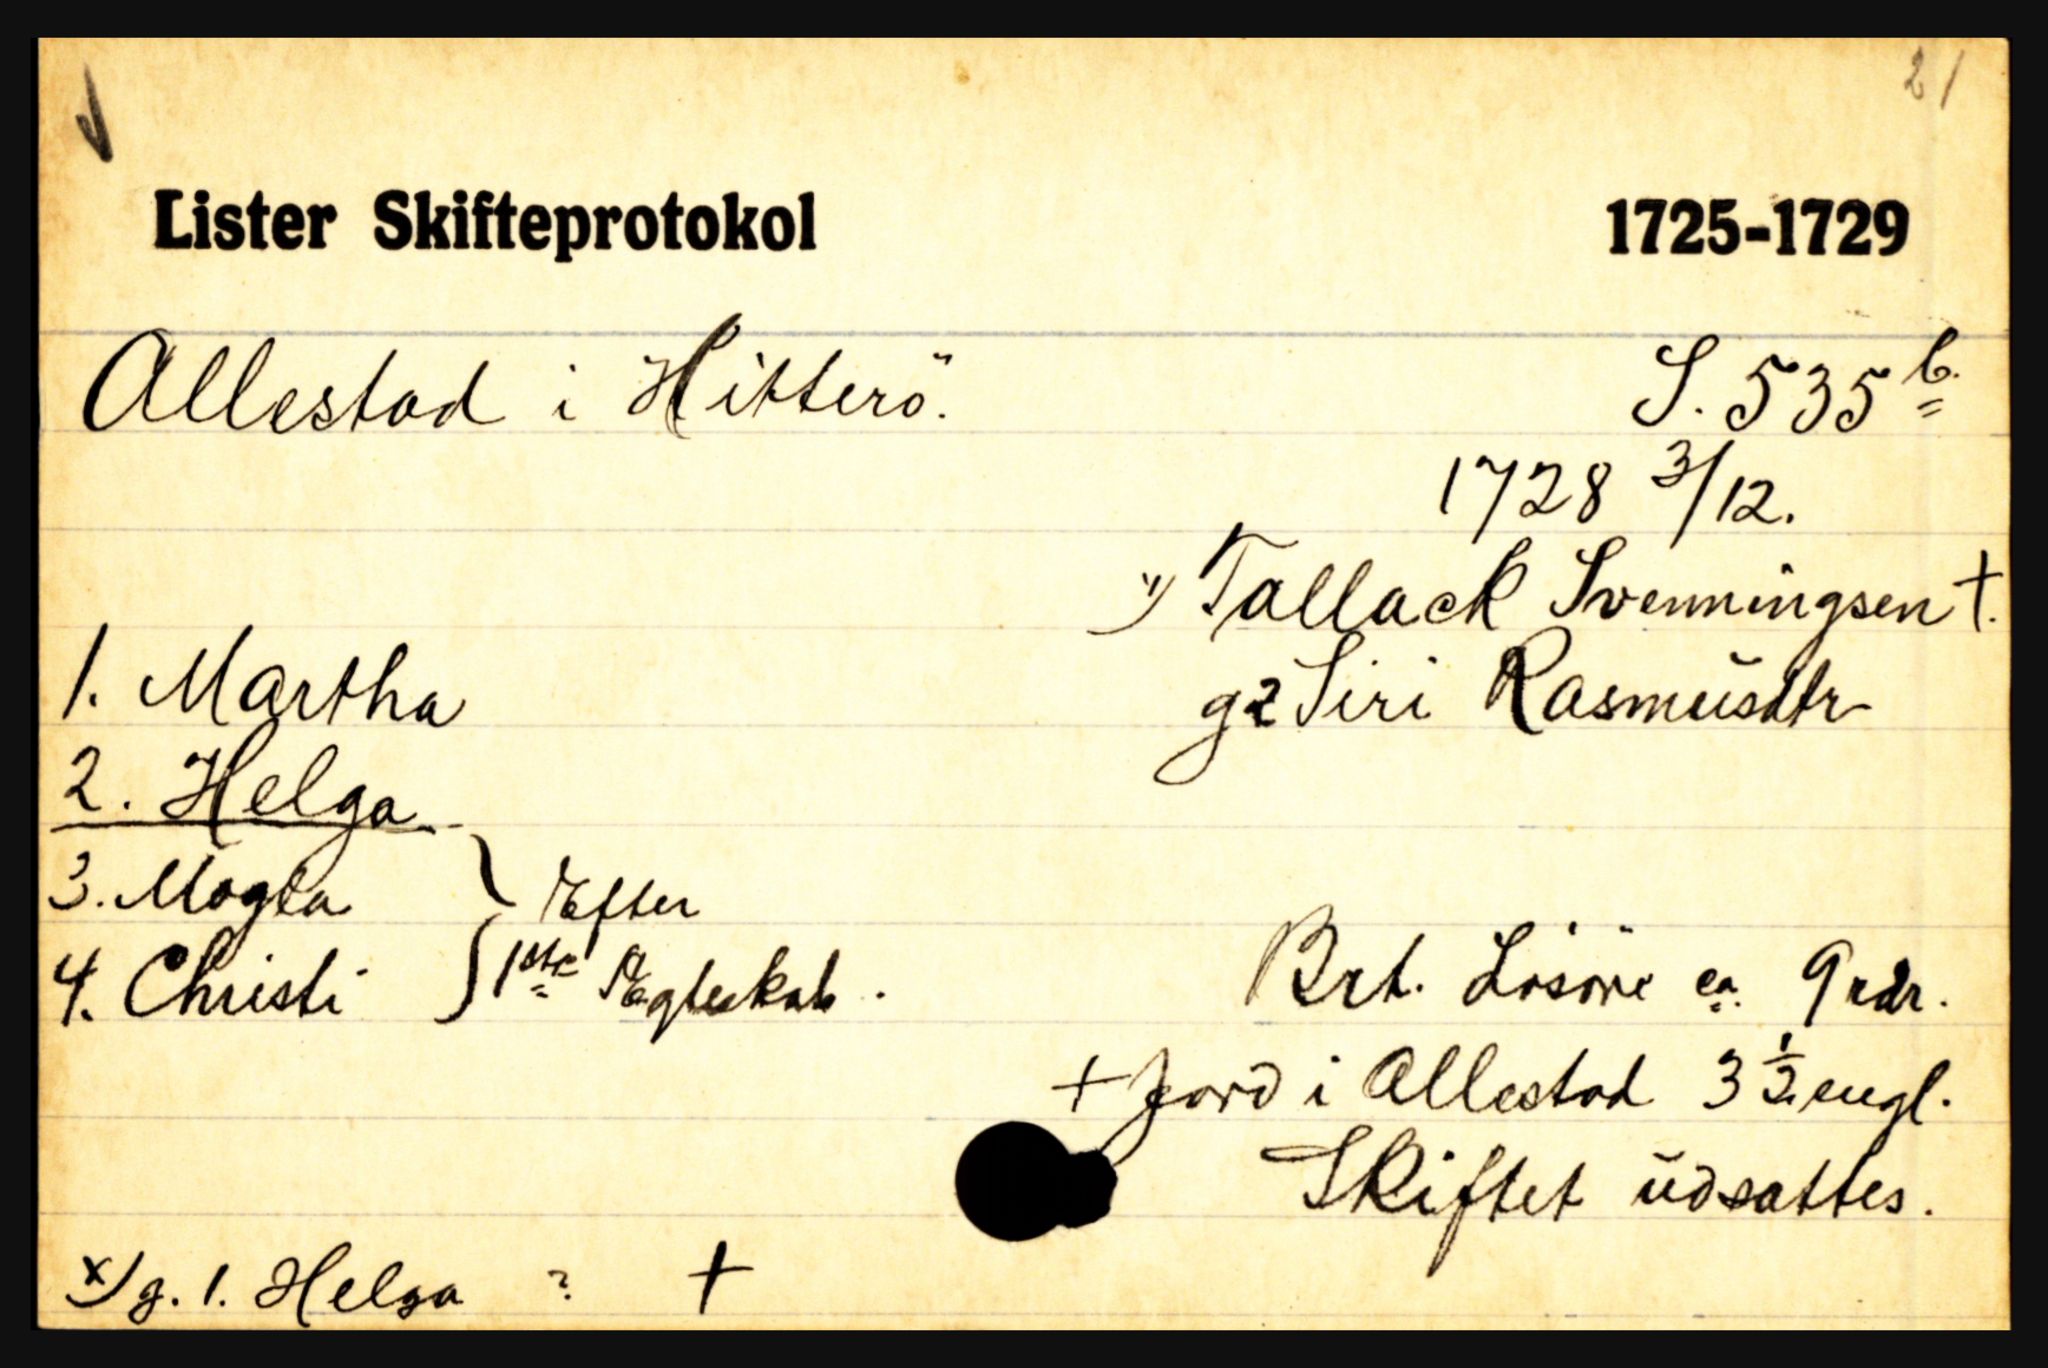 21
Lister Skifteprotokol 1725-1729
Allestad i Hitterö. S. 535 b.
1728 3/12.
") Tallack Svenningsen †.
1. Martha g2 Siri Rasmusdtr
2. Helga
3. Magla } Efter
4. Christi } 1ste Ægteskab. Brt. Lösöre ca. 9 rdr.
+ Jord i Allestad 3 1/2 engl.
Skiftet udsattes.
x) g. 1. Helga ? †